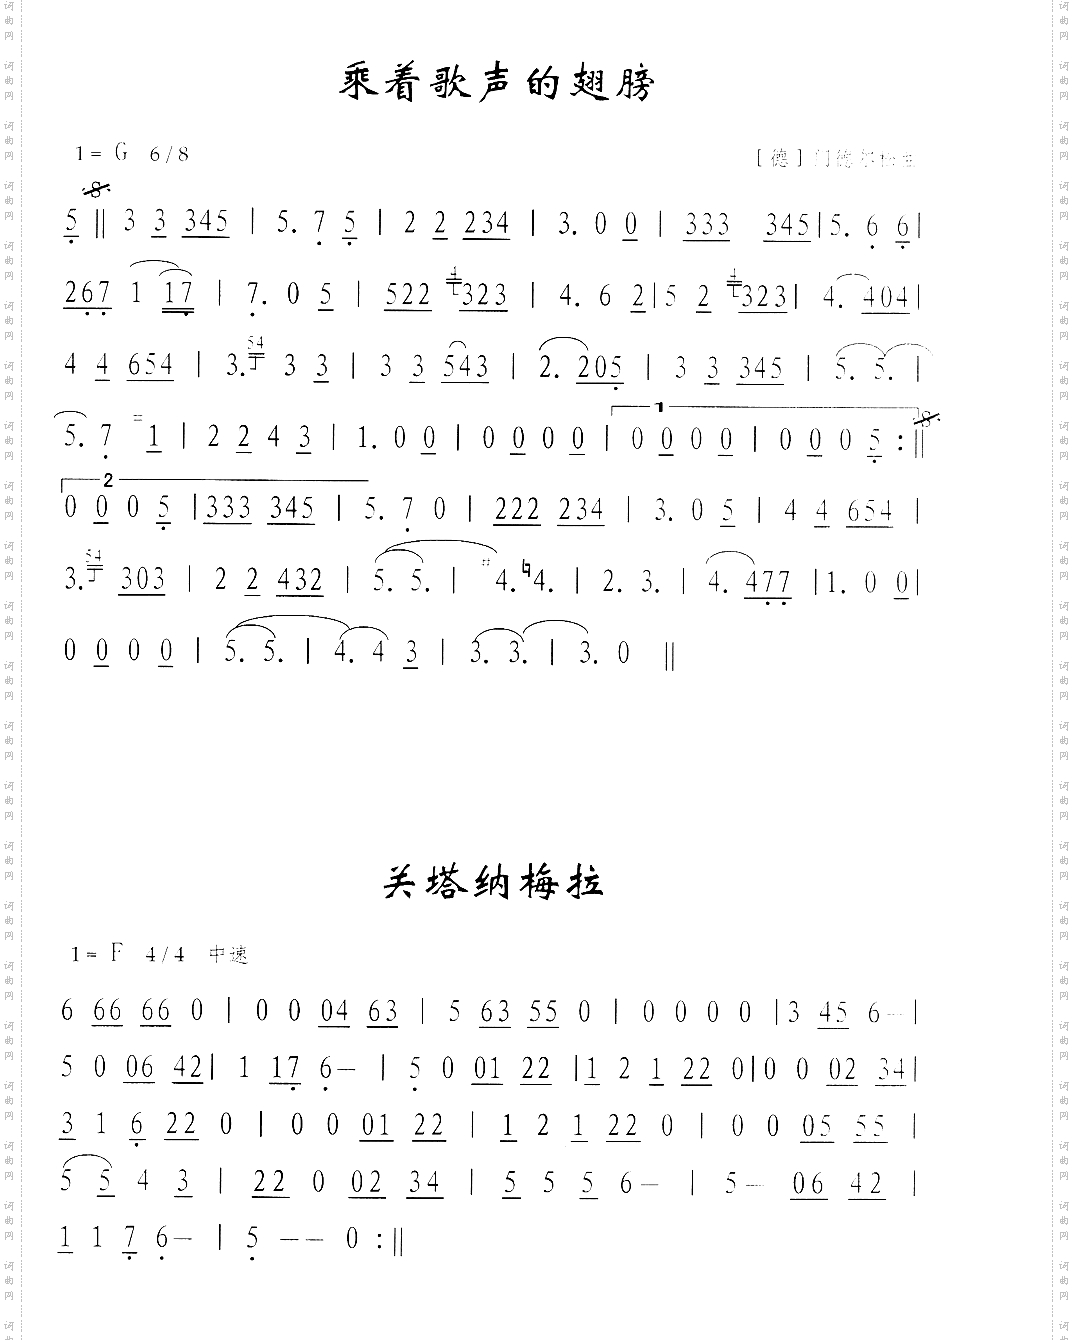 乘着歌声的翅膀
1= G 6/8 [德]门德尔松曲
5 || 3 3 345 | 5. 7 5 | 2 2 234 | 3. 0 0 | 333 345|5. 6 6|
267 1 17 | 7. 0 5 | 522 4 323 | 4. 6 2|5 2 4 323| 4. 404|
4 4 654 | 3. 54 3 3 | 3 3 543 | 2. 205 | 3 3 345 | 5. 5. |
5. 7 1 | 2 2 4 3 | 1. 0 0 | 0 0 0 0 | 1 0 0 0 0 | 0 0 0 5 :||
2 0 0 0 5 |333 345 | 5. 7 0 | 222 234 | 3. 0 5 | 4 4 654 |
3. 54 303 | 2 2 432 | 5. 5. | #4. ♮4. | 2. 3. | 4. 477 |1. 0 0|
0 0 0 0 | 5. 5. | 4. 4 3 | 3. 3. | 3. 0 ||
关塔纳梅拉
1= F 4/4 中速
6 66 66 0 | 0 0 04 63 | 5 63 55 0 | 0 0 0 0 |3 45 6— |
5 0 06 42| 1 17 6— | 5 0 01 22 |1 2 1 22 0|0 0 02 34|
3 1 6 22 0 | 0 0 01 22 | 1 2 1 22 0 | 0 0 05 55 |
5 5 4 3 | 22 0 02 34 | 5 5 5 6— | 5— 06 42 |
1 1 7 6— | 5 —— 0 :||
词曲网